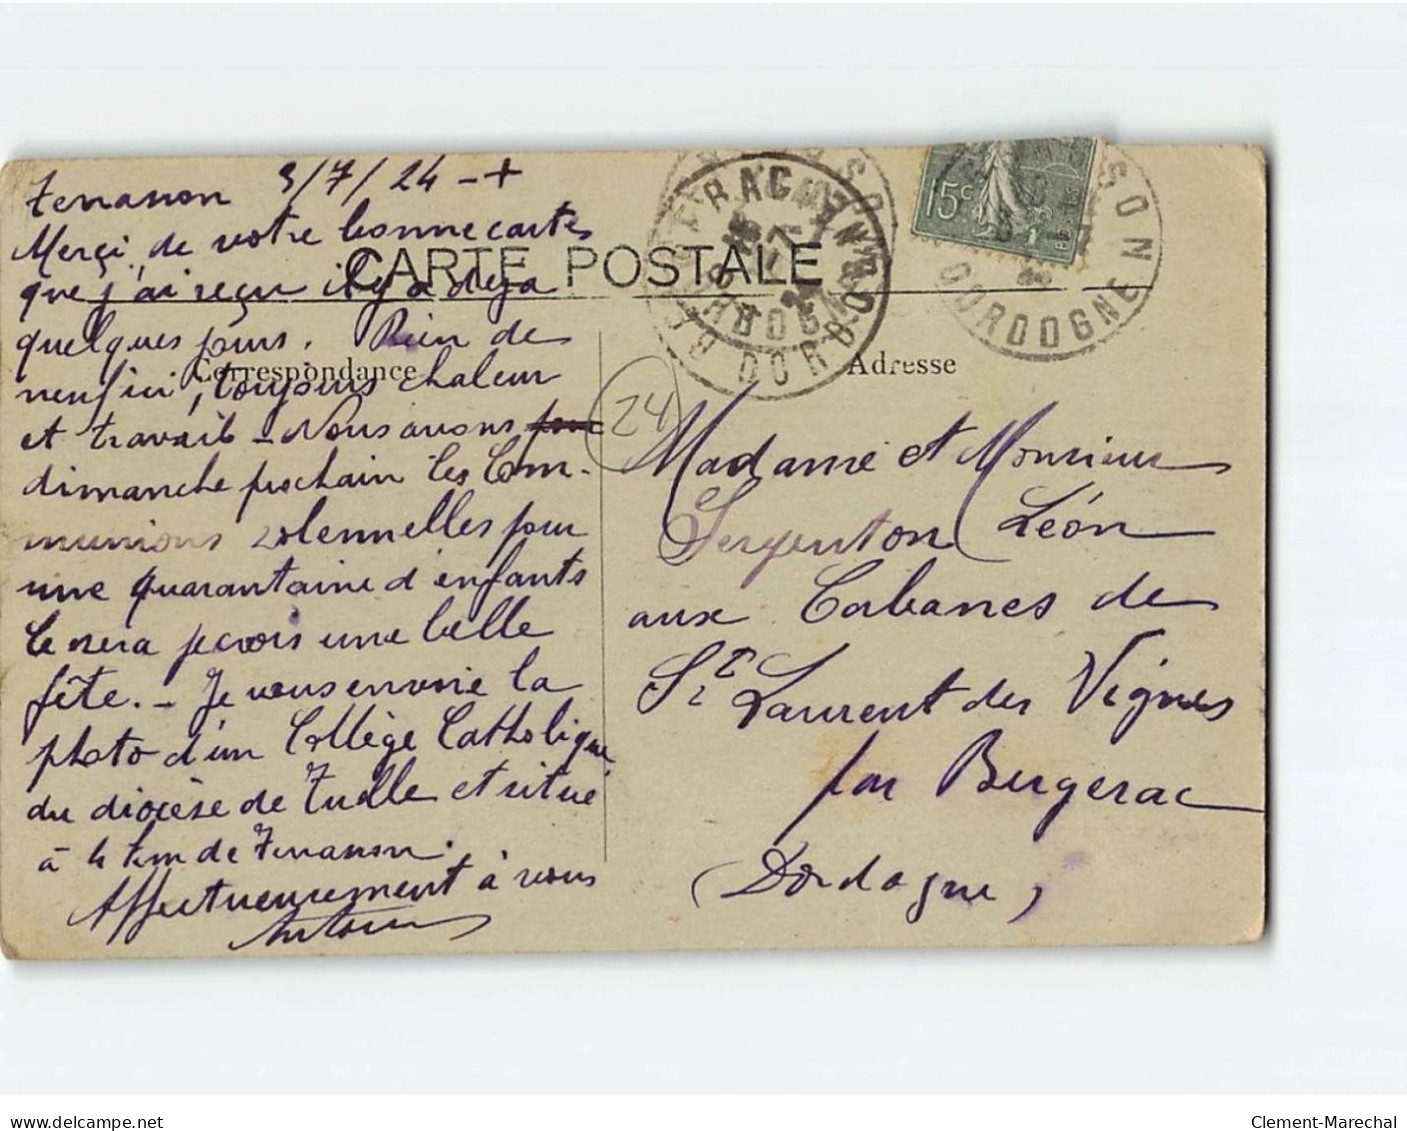 Terrasson 3/7/24 - +
Merçi, de votre bonne cartes
que j'ai reçu il y a deja
quelques jours. Rien de
neuf ici, toujours chaleur
et travail - Nous avons
dimanche prochain les Com-
munions solennelles pour
une quarantaine d'enfants
Ce sera je crois une belle
fête. - Je vous envoie la
photo d'un Collège Catholique
du diocèse de Tulle et situé
à 4 km de Terrasson.
Affectueusement à vous
Antoine
CARTE POSTALE
Correspondance
Adresse
24
15c
DORDOGNE
DORDOGNE
Madame et Monsieur
Sergenton Léon
aux Cabanes de
St Laurent des Vignes
par Bergerac
(Dordogne)
delcampe.net
Clement-Marechal